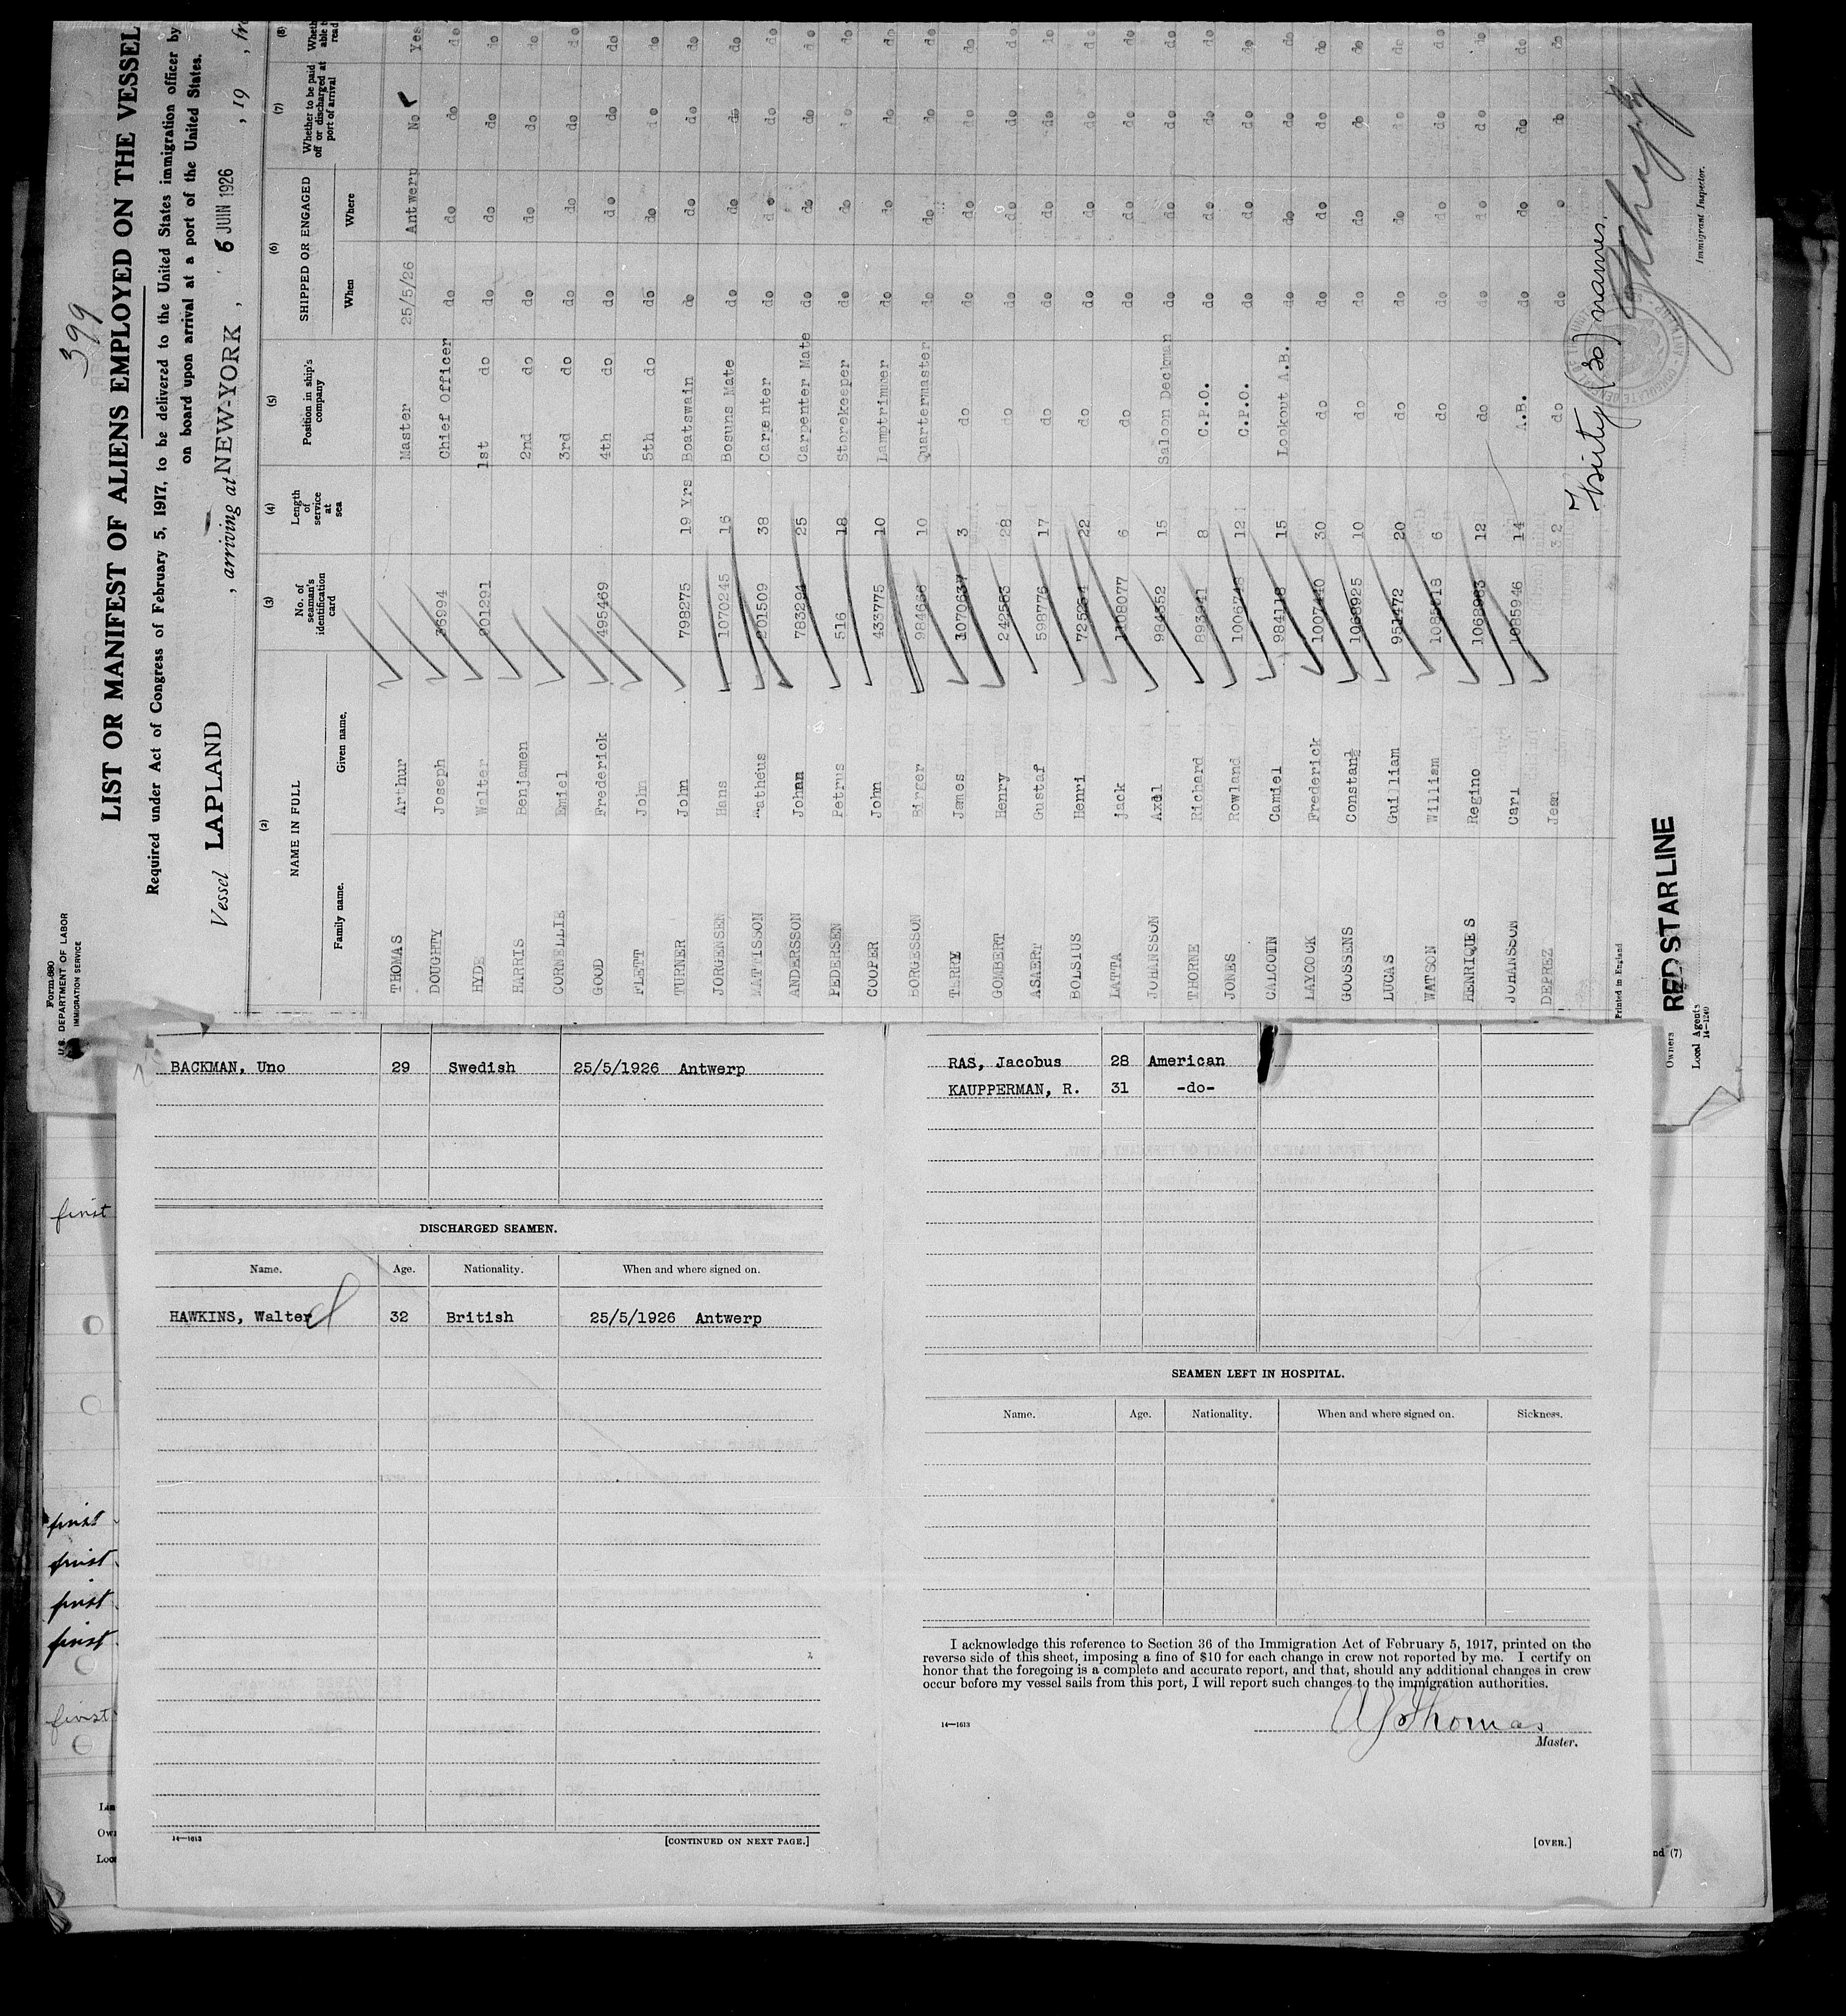 399
Form 680
U.S. DEPARTMENT OF LABOR
IMMIGRATION SERVICE
LIST OR MANIFEST OF ALIENS EMPLOYED ON THE VESSEL
Required under Act of Congress of February 5, 1917, to be delivered to the United States immigration officer by
on board upon arrival at a port of the United States.
Vessel LAPLAND , arriving at NEW-YORK , 5 JUIN 1926 , 19 , fr
(2) (3) (4) (5) (6) (7) (8)
NAME IN FULL No. of seaman's identification card Length of service at sea Position in ship's company SHIPPED OR ENGAGED Whether to be paid off or discharged at port of arrival Wheth able t read
Family name. Given name. When Where
THOMAS Arthur Master 25/5/26 Antwerp No Yes
DOUGHTY Joseph 36994 Chief Officer do do do do
HYDE Walter 901291 1st do do do do do
HARRIS Benjamen 2nd do do do do do
CORNELLIE Emiel 3rd do do do do do
GOOD Frederick 495469 4th do do do do do
FLETT John 5th do do do do do
TURNER John 799275 19 Yrs Boatswain do do do do
JORGENSEN Hans 1070245 16 Bosuns Mate do do do do
MATTISSON Matheus 201509 38 Carpenter do do do do
ANDERSSON Johan 783294 25 Carpenter Mate do do do do
PEDERSEN Petrus 516 18 Storekeeper do do do do
COOPER John 433775 10 Lamptrimmer do do do do
BORGESSON Birger 984656 10 Quartermaster do do do do
TERRY James 1070637 3 do do do do do
GOMBERT Henry 242553 28 do do do do do
ASAERT Gustaf 598776 17 do do do do do
BOLSIUS Henri 725254 22 do do do do do
LATTA jack 1108077 6 do do do do do
JOHANSSON Axel 984352 15 Saloon Deckman do do do do
THORNE Richard 893941 8 C.P.O. do do do do
JONES Rowland 1006748 12 C.P.O. do do do do
CALCOEN Camiel 984118 15 Lookout A.B. do do do do
LAYCOCK Frederick 1007440 30 do do do do do
GOOSSENS Constant 1068925 10 do do do do do
LUCAS Guilliam 951472 20 do do do do do
WATSON William 1085618 6 do do do do do
HENRIQUES Regino 1068963 12 do do do do do
JOHANSSON Carl 1085946 14 A.B. do do do do
DEPREZ Jean 32 do do do do do
Thirty (30) names.
Immigrant Inspector.
Printed in England
Owners RED STAR LINE
Local Agents
14—1240
BACKMAN, Uno 29 Swedish 25/5/1926 Antwerp
DISCHARGED SEAMEN.
Name. Age. Nationality. When and where signed on.
HAWKINS, Walter 32 British 25/5/1926 Antwerp
14—1613
[CONTINUED ON NEXT PAGE.]
RAS, Jacobus 28 American
KAUPPERMAN, R. 31 -do-
SEAMEN LEFT IN HOSPITAL.
Name. Age. Nationality. When and where signed on. Sickness.
I acknowledge this reference to Section 36 of the Immigration Act of February 5, 1917, printed on the
reverse side of this sheet, imposing a fine of $10 for each change in crew not reported by me. I certify on
honor that the foregoing is a complete and accurate report, and that, should any additional changes in crew
occur before my vessel sails from this port, I will report such changes to the immigration authorities.
14—1613
A J Thomas
Master.
[OVER.]
first
first
first
first
first
first
Lin
Own
Loca
nd (7)